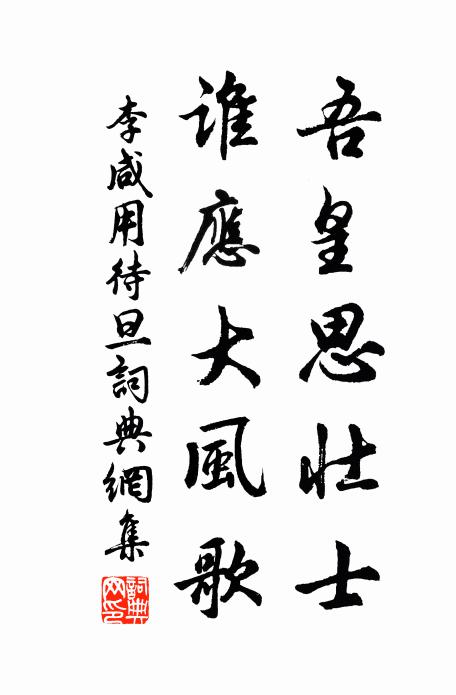 吾皇思壯士
誰應大風歌
李咸用待旦詞典網集
詞典網印